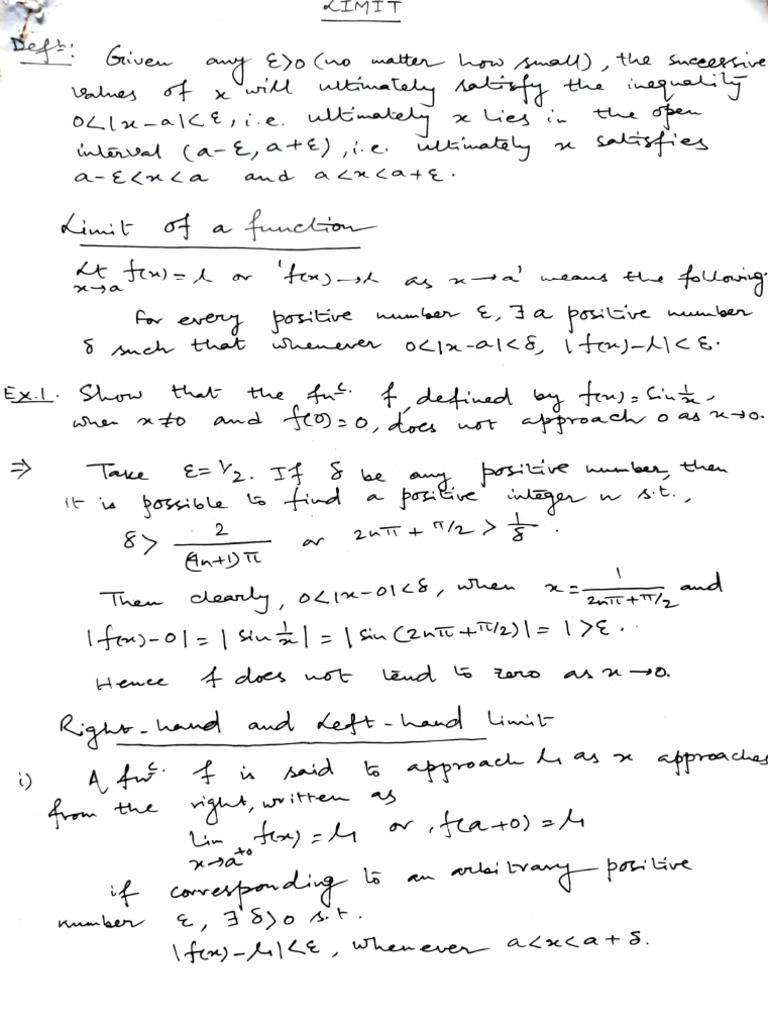 LIMIT
Defⁿ: Given any ε>0 (no matter how small), the successive
values of x will ultimately satisfy the inequality
0<|x-a|<ε, i.e. ultimately x lies in the open
interval (a-ε, a+ε), i.e. ultimately x satisfies
a-ε<x<a and a<x<a+ε.
Limit of a function
Lt f(x)=l or 'f(x)→l as x→a' means the following.
x→a
For every positive number ε, ∃ a positive number
δ such that whenever 0<|x-a|<δ, |f(x)-l|<ε.
Ex.1. Show that the fnᶜ. f, defined by f(x)=Sin 1/x,
when x≠0 and f(0)=0, does not approach 0 as x→0.
⇒ Take ε=1/2. If δ be any positive number, then
it is possible to find a positive integer n s.t.,
δ> 2/(4n+1)π or 2nπ+π/2 > 1/δ.
Then clearly, 0<|x-0|<δ, when x= 1/(2nπ+π/2) and
|f(x)-0|=|sin 1/x|=|sin(2nπ+π/2)|=1>ε.
Hence f does not tend to zero as x→0.
Right-hand and Left-hand Limit
i) A fnᶜ. f is said to approach l₁ as x approaches
from the right, written as
Lim f(x)=l₁ or, f(a+0)=l₁
x→a⁺⁰
if corresponding to an arbitrary positive
number ε, ∃ δ>0 s.t.
|f(x)-l₁|<ε, whenever a<x<a+δ.